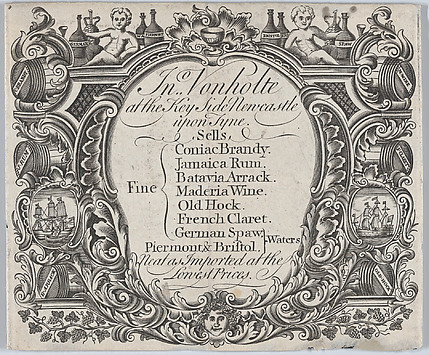 Jno. Vonholte
at the Key Side Newcastle
upon Tyne.
Sells,
Fine
Coniac Brandy.
Jamaica Rum.
Batavia Arrack.
Maderia Wine.
Old Hock.
French Claret.
German Spaw
Piermont & Bristol.
Waters
Neat as Imported at the
Lowest Prices.